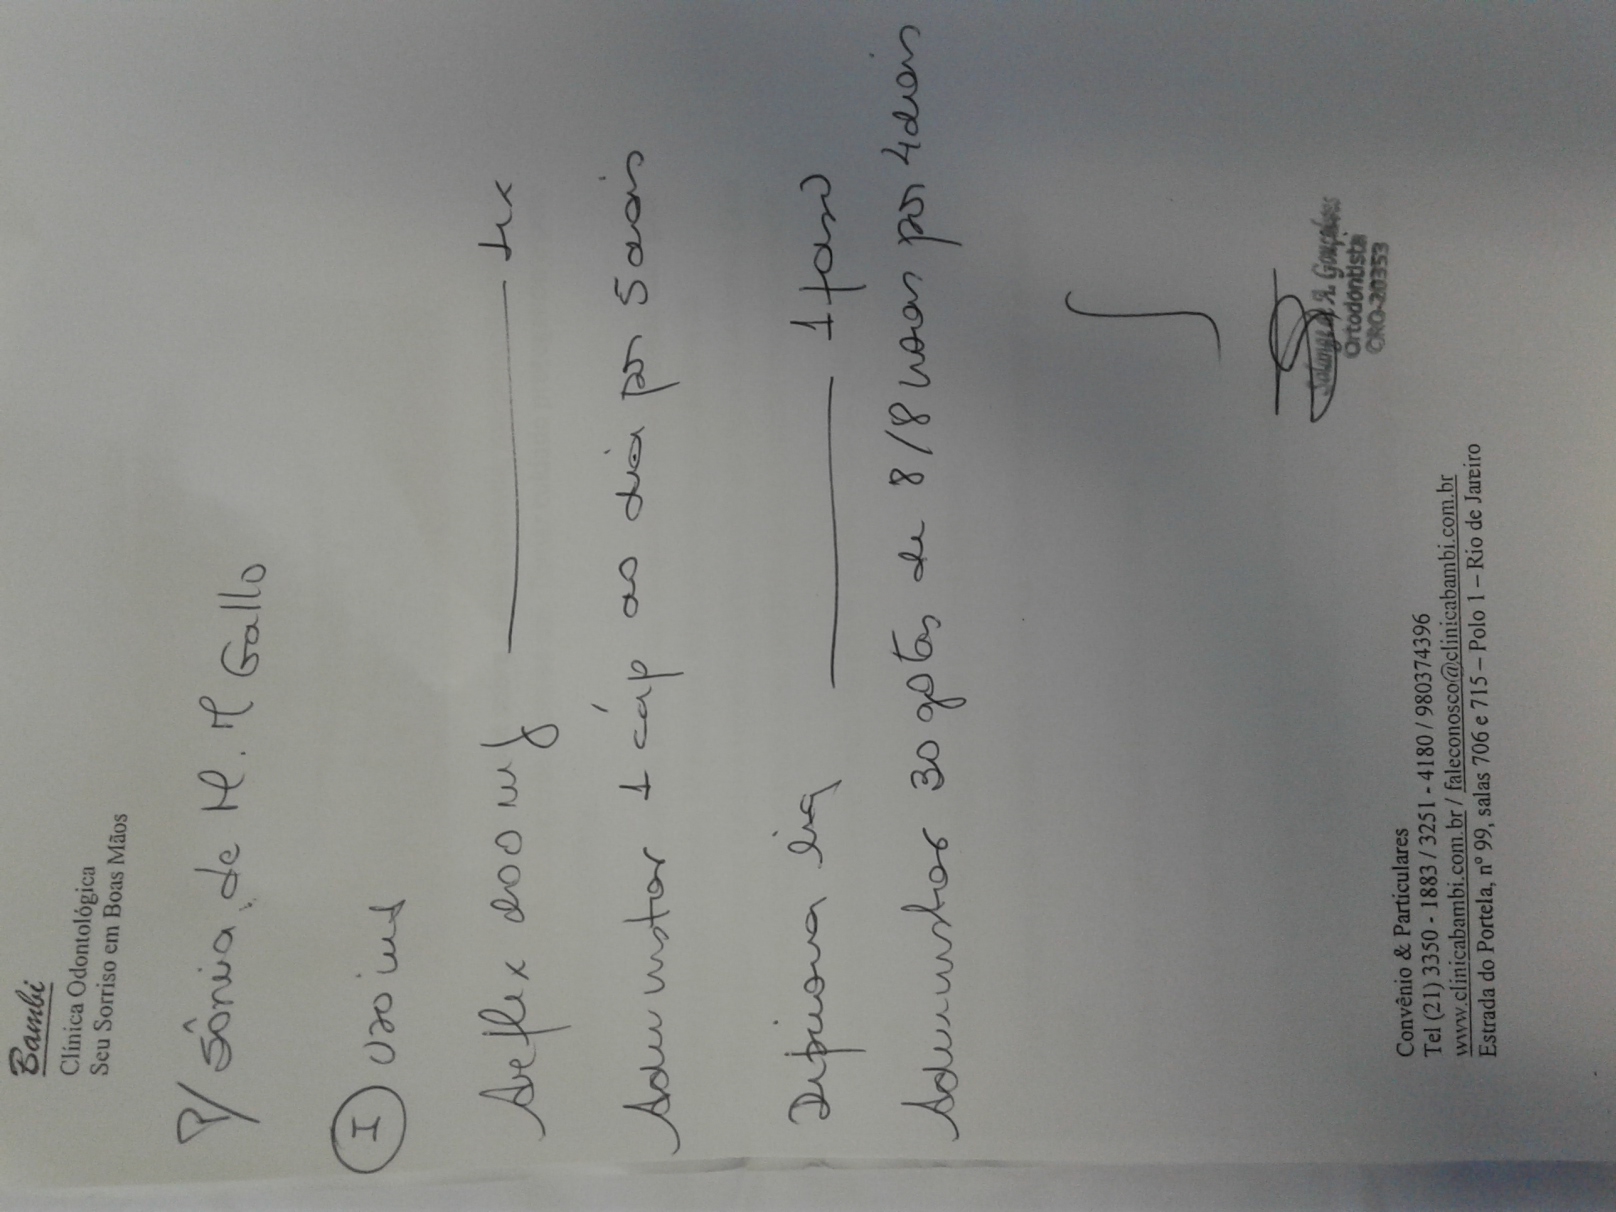 Bambi
Clínica Odontológica
Seu Sorriso em Boas Mãos
P/ Sônia de M. M Gallo
I uso int
Arflex 200 mg 1cx
Administrar 1 cáp ao dia por 5 dias
Dipirona liq 1 frasco
Administrar 30 gotas de 8/8 horas por 4 dias
Solange A. Gonçalves
Ortodontista
CRO-20353
Convênio & Particulares
Tel (21) 3350 - 1883 / 3251 - 4180 / 980374396
www.clinicabambi.com.br / faleconosco@clinicabambi.com.br
Estrada do Portela, nº 99, salas 706 e 715 – Polo 1 – Rio de Janeiro